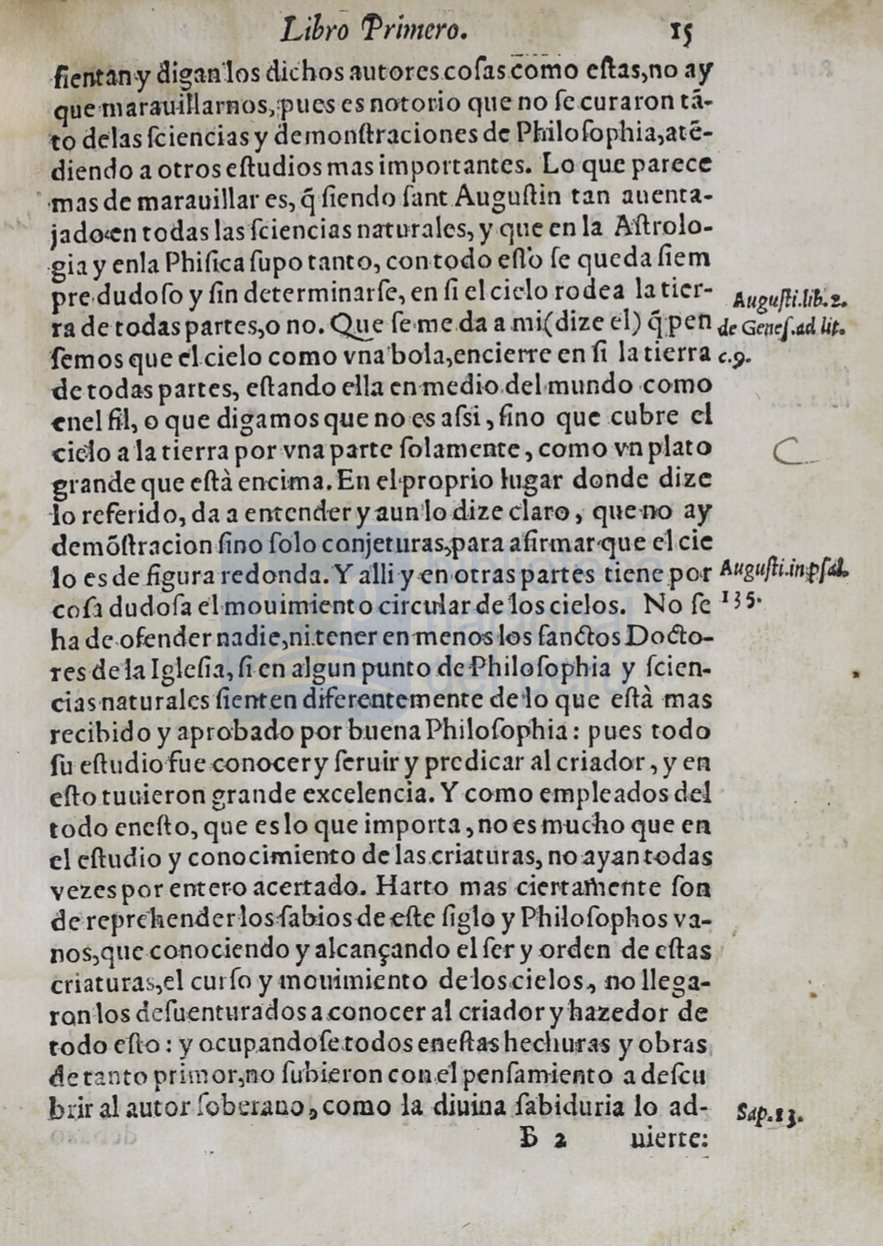 Libro Primero. 15
ſientan y digan los dichos autores coſas como eſtas, no ay
que marauillarnos, pues es notorio que no ſe curaron tã-
to delas ſciencias y demonſtraciones de Philoſophia, atẽ-
diendo a otros eſtudios mas importantes. Lo que parece
mas de marauillar es, q̃ ſiendo ſant Auguſtin tan auenta-
jado en todas las ſciencias naturales, y que en la Aſtrolo-
gia y enla Phiſica ſupo tanto, con todo eſſo ſe queda ſiem
pre dudoſo y ſin determinarſe, en ſi el cielo rodea la tier-
Auguſti.lib.2.
ra de todas partes, o no. Que ſe me da a mi (dize el) q̃ pen
de Geneſ.ad lit.
ſemos que el cielo como vna bola, encierre en ſi la tierra
c.9.
de todas partes, eſtando ella en medio del mundo como
enel fil, o que digamos que no es aſsi, ſino que cubre el
cielo a la tierra por vna parte ſolamente, como vn plato
grande que eſtà encima. En el proprio lugar donde dize
lo referido, da a entender y aun lo dize claro, que no ay
demõſtracion ſino ſolo conjeturas, para afirmar que el cie
lo es de figura redonda. Y alli y en otras partes tiene por
Auguſti.in pſal.
coſa dudoſa el mouimiento circular de los cielos. No ſe
135.
ha de ofender nadie, ni tener en menos los ſanctos Docto-
res de la Igleſia, ſi en algun punto de Philoſophia y ſcien-
cias naturales ſienten diferentemente de lo que eſtà mas
recibido y aprobado por buena Philoſophia: pues todo
ſu eſtudio fue conocer y ſeruir y predicar al criador, y en
eſto tuuieron grande excelencia. Y como empleados del
todo eneſto, que es lo que importa, no es mucho que en
el eſtudio y conocimiento de las criaturas, no ayan todas
vezes por entero acertado. Harto mas ciertamente ſon
de reprehender los ſabios de eſte ſiglo y Philoſophos va-
nos, que conociendo y alcançando el ſer y orden de eſtas
criaturas, el curſo y mouimiento de los cielos, no llega-
ron los deſuenturados a conocer al criador y hazedor de
todo eſto: y ocupandoſe todos eneſtas hechuras y obras
de tanto primor, no ſubieron con el penſamiento a deſcu
brir al autor ſoberano, como la diuina ſabiduria lo ad-
Sap.13.
B 2 uierte: